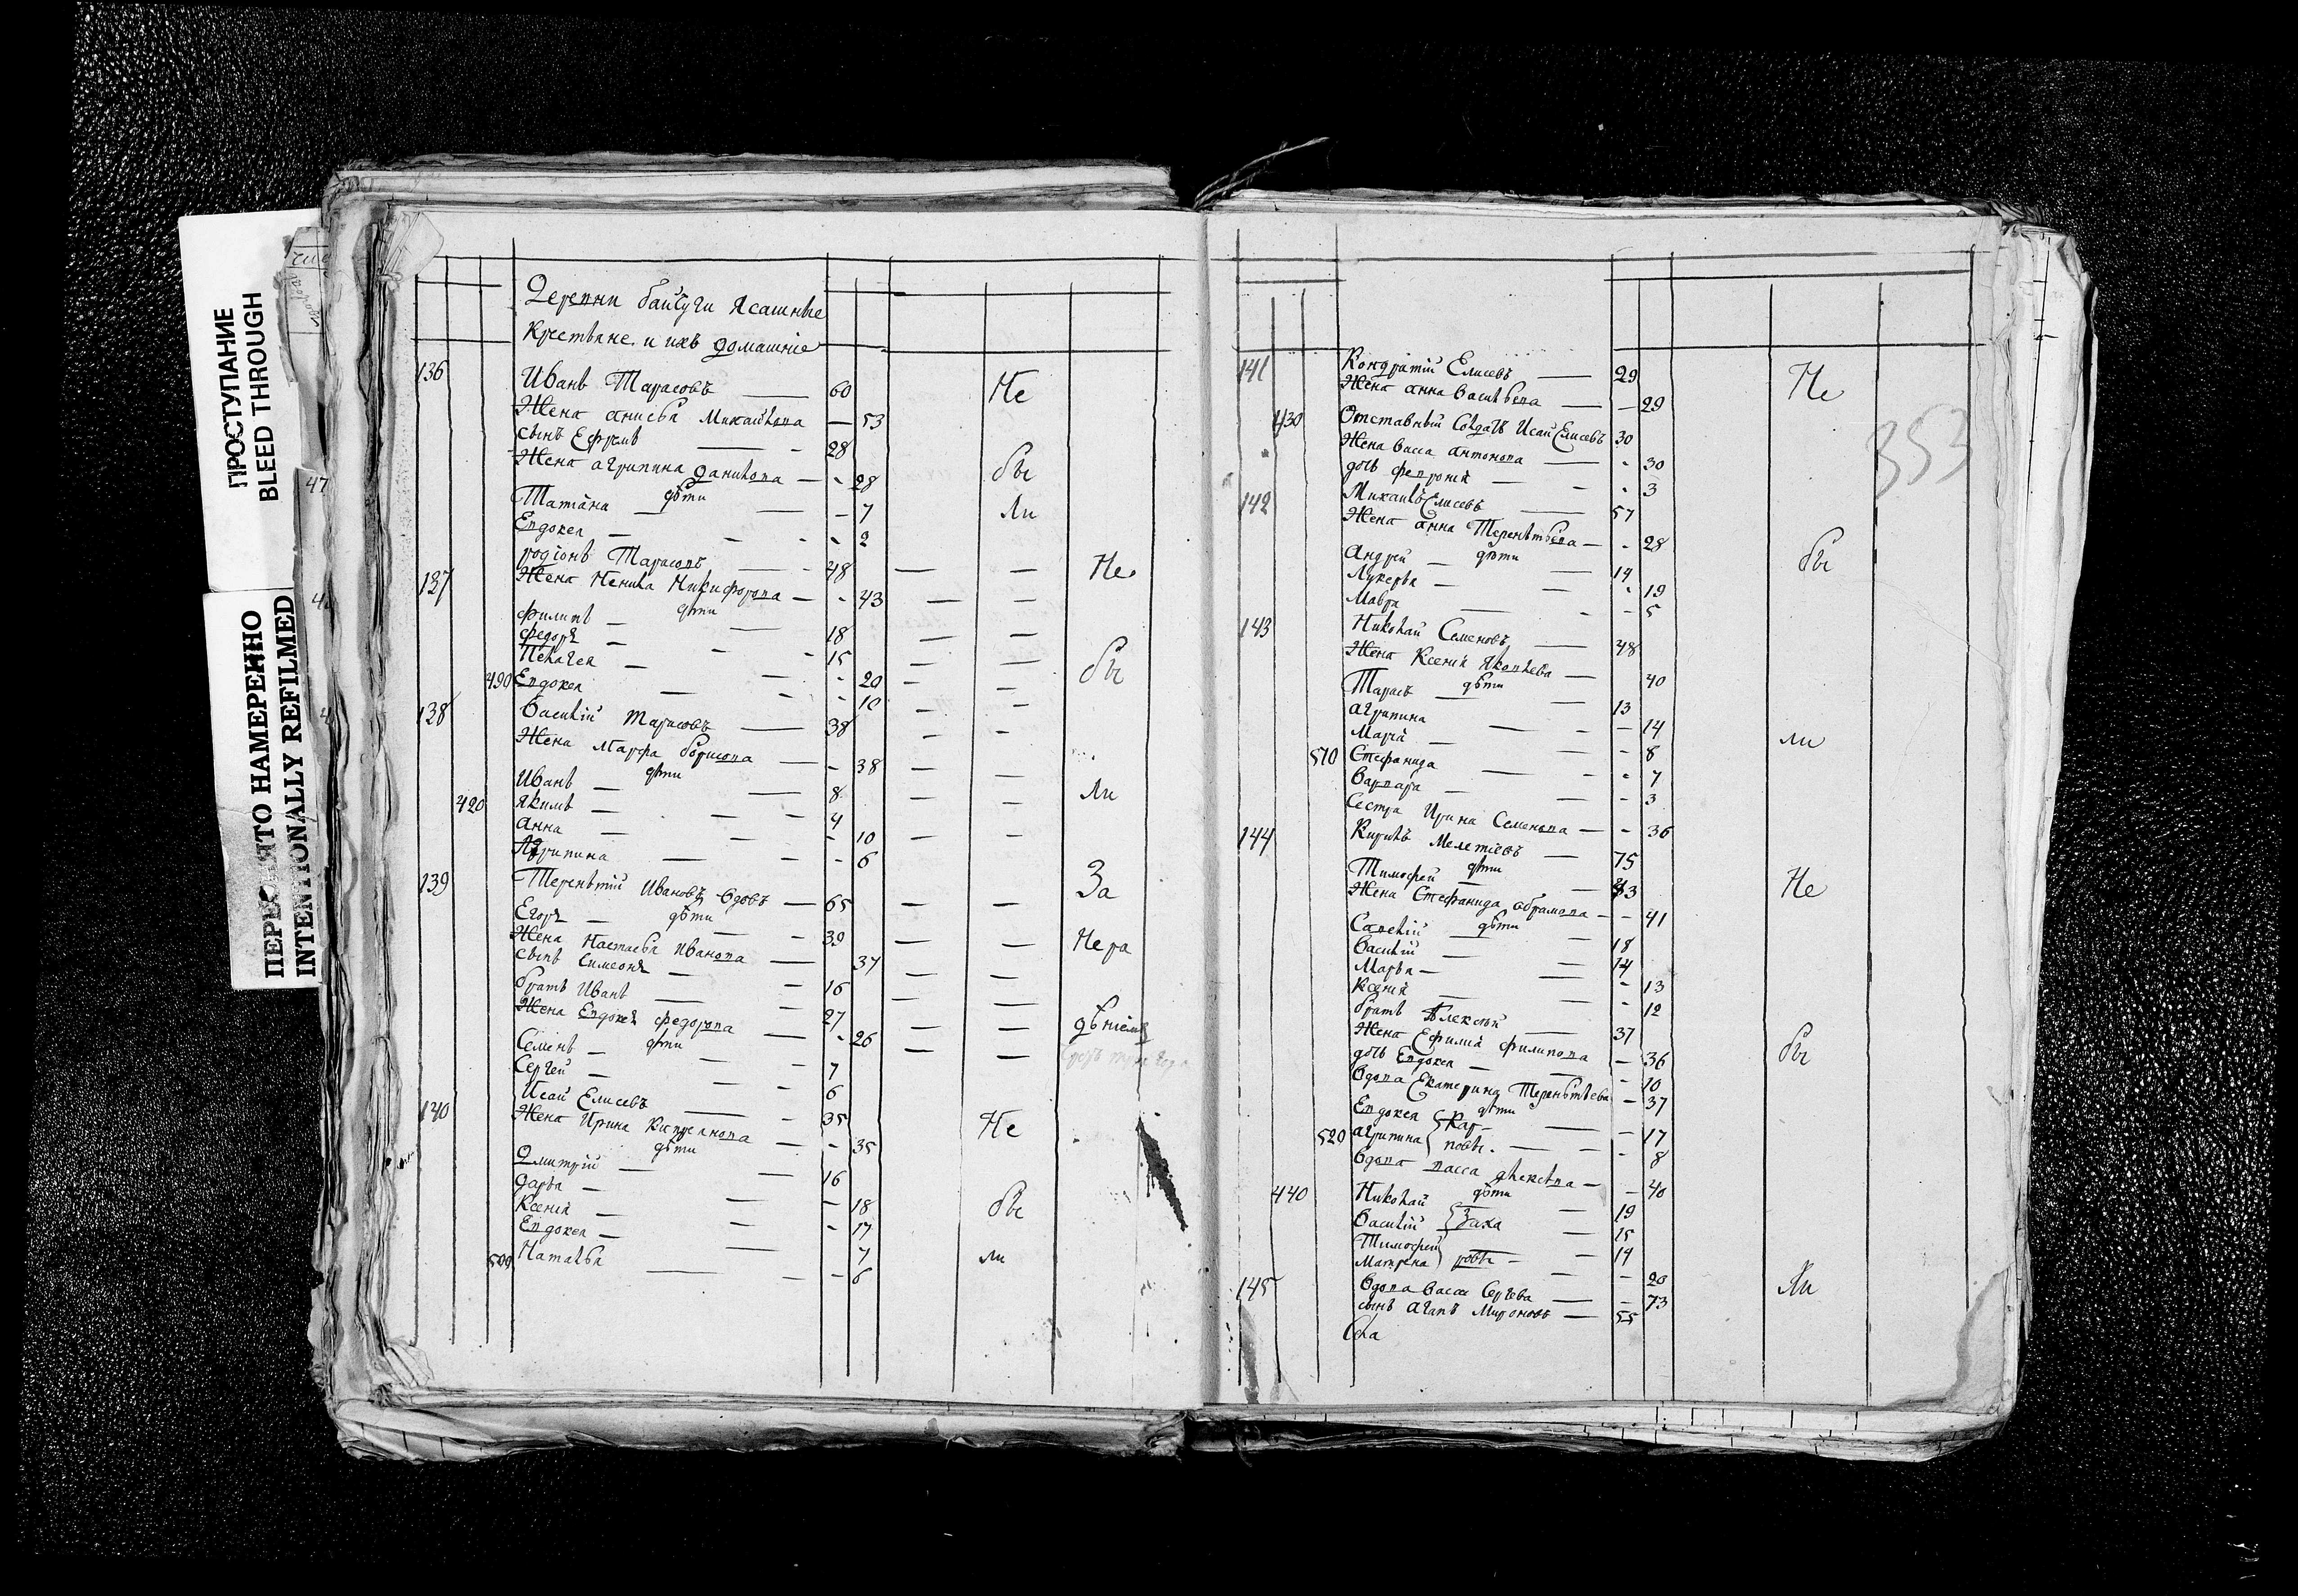 ПРОСТУПАНИЕ
BLEED THROUGH
ПЕРЕСНЯТО НАМЕРЕННО
INTENTIONALLY REFILMED
47
Деревни байтуги Ясашные
Крестьяне и ихъ домашніе
136 Иванъ Тарасовъ — 60 Не
Жена анисья Михайлова — 53
сынъ Ефремъ — 28
Жена агрипина данилова — 28 бы
дѣти
Татіана — 7 ли
Евдокея — 2
137 родіонъ Тарасовъ — 48 — — Не
Жена Ненила Никифорова — 43 — —
дѣти
филипъ — 18 — —
федоръ — 15 — — бы
Пелагея — 20 — —
490 Евдокея — 10 — —
138 Василій Тарасовъ — 38 — —
Жена Марфа борисова — 38 — —
дѣти
Иванъ — 8 — — ли
420 якимъ — 4
Анна — 10 — —
Агрипина — 6
139 Терентій Ивановъ вдовъ — 65 — — За
дѣти
Егоръ — 39 — — Нера
Жена Настасья Иванова — 37 — —
сынъ Симеонъ — 16 — —
братъ Иванъ — 27 — — дѣніемъ
Жена Евдокея федорова — 26 — —
дѣти
Семенъ — 7
Сергей — 6
140 Исай Елисевъ — 35 Не
Жена Ирина Киприанова — 35
дѣти
Дмитрій — 16
дарья — 18 бы
Ксенія — 17
Евдокея — 7 ли
509 Наталья — 6
353
141 Кондратій Елисевъ — 29 Не
Жена анна васильева — 29
430 Отставный Солдатъ Исай Елисевъ 30
Жена васса антонова — 30
дочь феврония — 3
142 Михаилъ Елисевъ 57
Жена анна Терентьева — 28 бы
дѣти
Андрей — 14
Лукерья — 19
Мавра — 5
143 Николай Семеновъ — 48
Жена Ксенія Яковлева — 40
дѣти
Тарасъ — 13
агрипина — 14
Марія — 8 ли
510 Стефанида — 7
варвара — 3
Сестра Ирина Семенова — 36
144 Кирилъ Мелетіевъ — 75
дѣти
Тимофей — 43 Не
Жена Стефанида абрамова — 41
дѣти
Савелій — 18
василій — 14
Марья — 13
Ксенія — 12
братъ Алексѣй — 37
Жена Ефимія филипова — 36 бы
дочь Евдокея — 10
вдова Екатерина Терентьева — 37
дѣти
Евдокея Кар- — 17
520 агрипина повы. — 8
вдова васса — 40
дѣти
440 Николай — 19
василій Заха — 15
Тимофей ровы — 14
Матрена — 20
145 вдова васса Сергева — 73 Ли
сынъ агапъ Мироновъ — 55